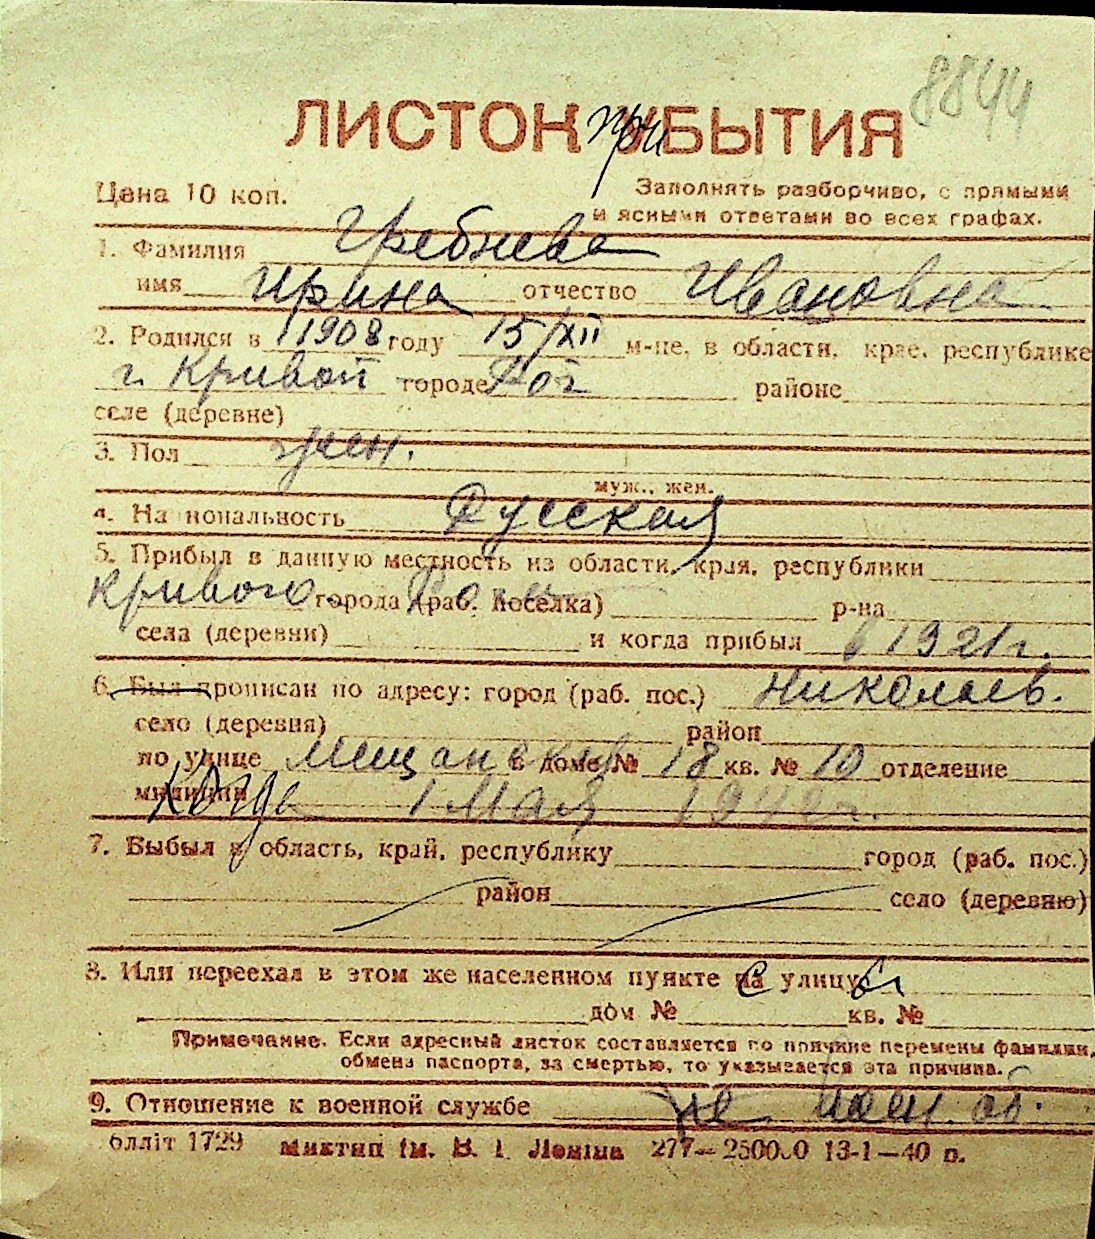 8844
ЛИСТОК приБЫТИЯ
Цена 10 коп.
Заполнять разборчиво, с прямыми
и ясными ответами во всех графах.
1. Фамилия Гребнева
имя Ирина отчество Ивановна
2. Родился в 1908 году 15/XII м-це, в области, крае, республике
г. Кривой городе Рог районе
селе (деревне)
3. Пол жен.
муж., жен.
4. Национальность Русская
5. Прибыл в данную местность из области, края, республики
Кривого города (раб. поселка) Рога р-на
села (деревни) и когда прибыл в 1921 г.
6. Был прописан по адресу: город (раб. пос.) Николаев.
село (деревня) район
по улице Мещанская в доме № 18 кв. № 10 отделение
милиции Когда 1 Мая 1940 г.
7. Выбыл в область, край, республику город (раб. пос.)
район село (деревню)
8. Или переехал в этом же населенном пункте с улицы
дом № кв. №
Примечание. Если адресный листок составляется по причине перемены фамилии,
обмена паспорта, за смертью, то указывается эта причина.
9. Отношение к военной службе не воен. об.
блліт 1729 Миктип ім. В. І. Леніна 277—250000 13-1—40 р.